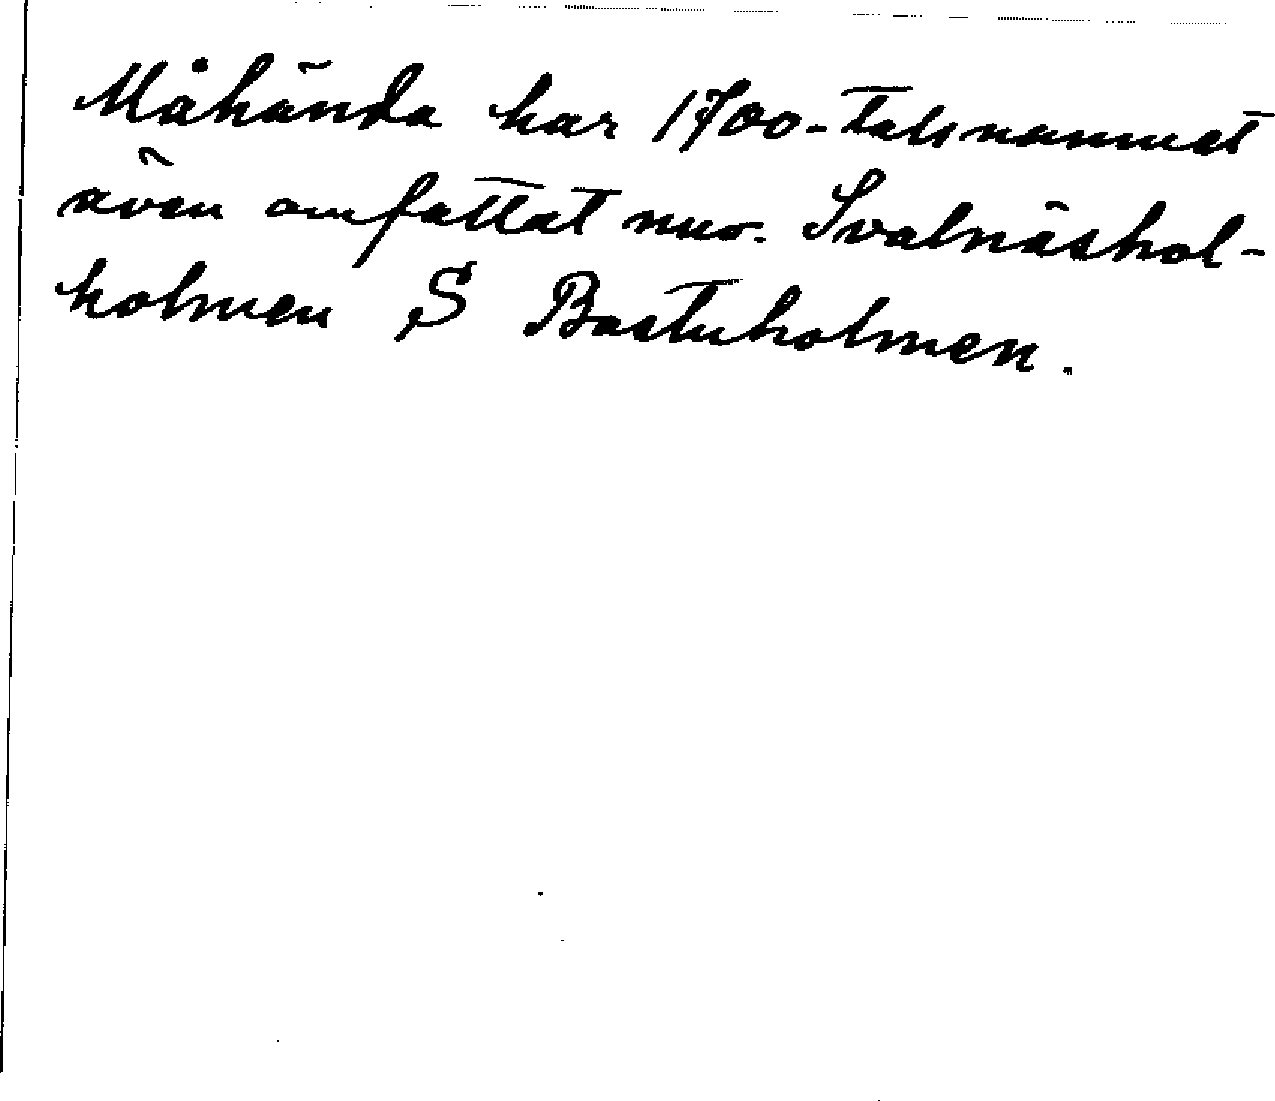 Måhända har 1700-talsnamnet
även omfattat nuv. Svalnäshol-
holmen S Bastuholmen.